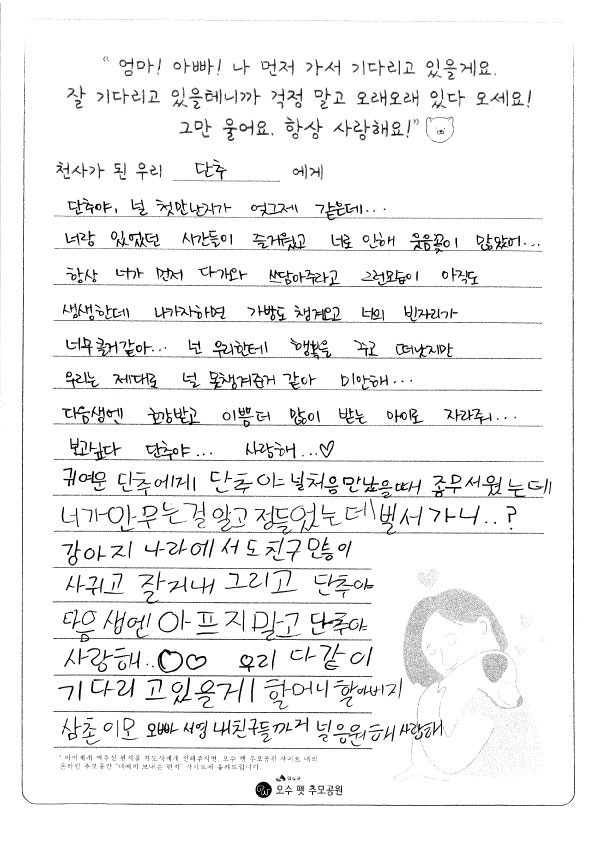 “ 엄마! 아빠! 나 먼저 가서 기다리고 있을게요.
잘 기다리고 있을테니까 걱정 말고 오래오래 있다 오세요!
그만 울어요. 항상 사랑해요!”
천사가 된 우리 단추 에게
단추야, 널 첫만난지가 엊그제 같은데...
너랑 있었던 시간들이 즐거웠고 너로 인해 웃음꽃이 많았어...
항상 너가 먼저 다가와 쓰담아주라고 그런모습이 아직도
생생한데 나가자하면 가방도 챙겨오고 너의 빈자리가
너무 클거같아... 넌 우리한테 행복을 주고 떠났지만
우리는 제대로 널 못챙겨준거 같아 미안해...
다음생엔 건강받고 이쁨더 많이 받는 아이로 자라줘...
보고싶다 단추야... 사랑해...♡
귀여운 단추에게 단추야 널처음만났을때 좀무서웠는데
너가안무는걸알고 정들었는데 벌서가니..?
강아지 나라에서도 친구만등이
사귀고 잘지내 그리고 단추야
다음생엔 아프지말고 단추야
사랑해..♡♡ 우리 다같이
기다리고있을게 할머니 할아버지
삼촌 이모 오빠 서영 내친구들까지 널응원해 사랑해
* 아이에게 써주신 편지를 지도사에게 전해주시면, 오수 펫 추모공원 사이트 내의
온라인 추모공간 "너에게 보내는 편지" 사이트에 올려드립니다
임실군
오수 펫 추모공원